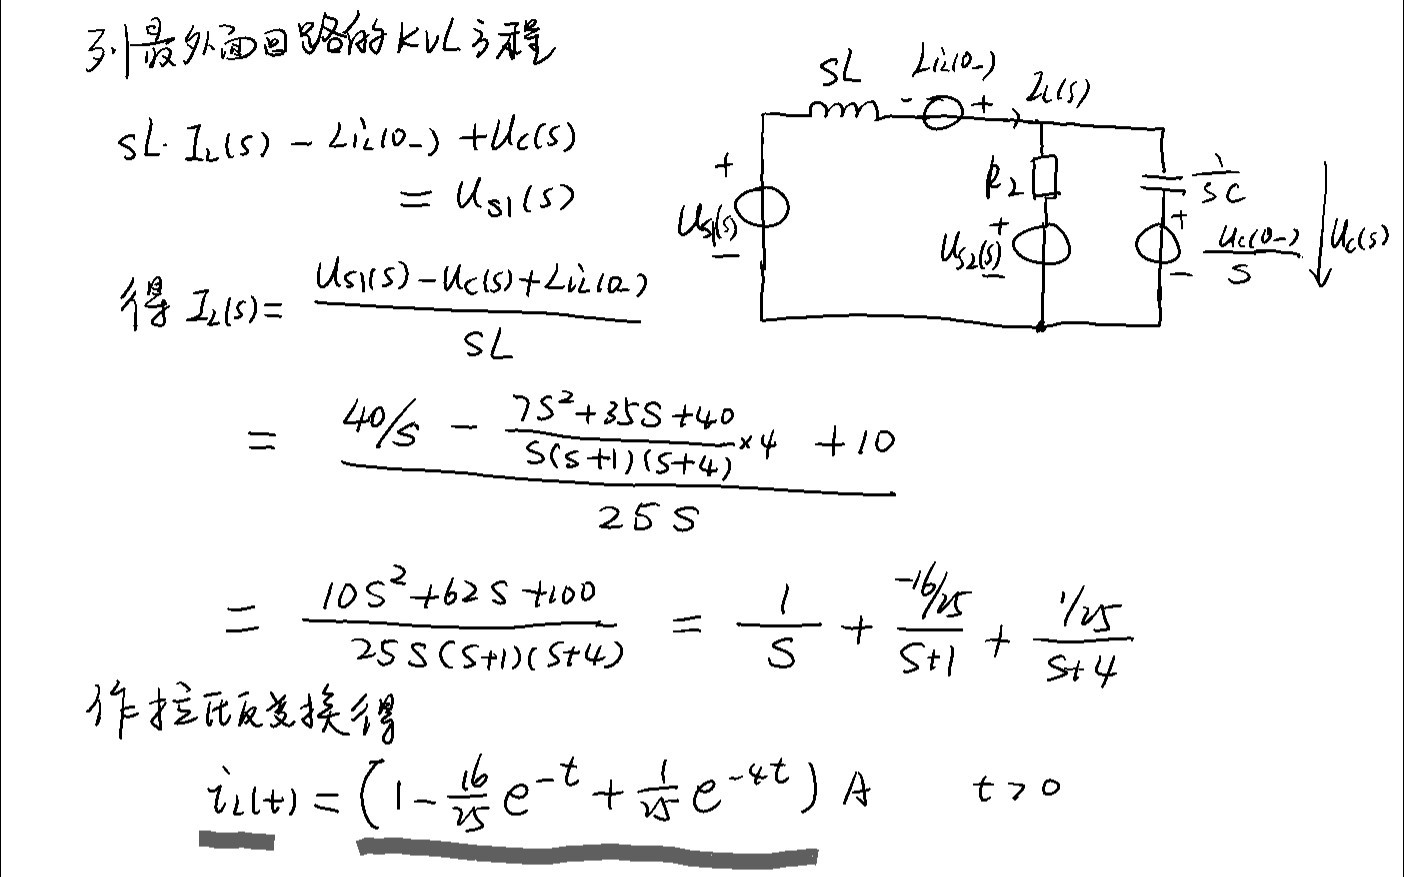 列最外面回路的KVL方程
sL·I_L(s) - Li_L(0_-) + U_C(s)
= U_S1(s)
得 I_L(s) = (U_S1(s) - U_C(s) + Li_L(0_-)) / sL
= (40/s - (7s²+35s+40)/(s(s+1)(s+4)) ×4 + 10) / 25s
= (10s²+62s+100)/(25s(s+1)(s+4)) = 1/s + (-16/25)/(s+1) + (1/25)/(s+4)
作拉氏反变换得
i_L(t) = (1 - 16/25 e^{-t} + 1/25 e^{-4t}) A t>0
sL
Li_L(0_-)
- +
I_L(s)
+
U_S1(s)
-
R2
+
U_S2(s)
-
1/sC
+
U_C(0_-)/s
-
U_C(s)